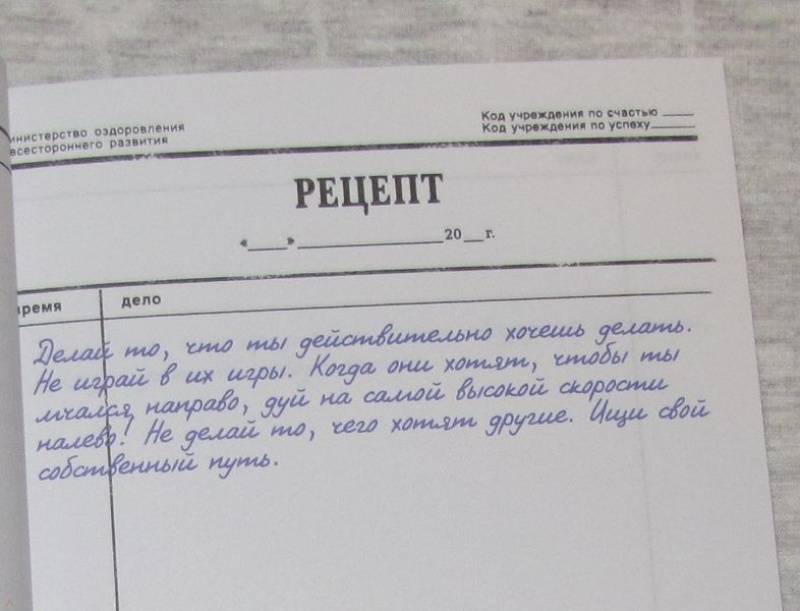 министерство оздоровления
всестороннего развития
Код учреждения по счастью ____
Код учреждения по успеху____
РЕЦЕПТ
«____»______________20__г.
время дело
Делай то, что ты действительно хочешь делать.
Не играй в их игры. Когда они хотят, чтобы ты
мчался направо, дуй на самой высокой скорости
налево! Не делай то, чего хотят другие. Ищи свой
собственный путь.